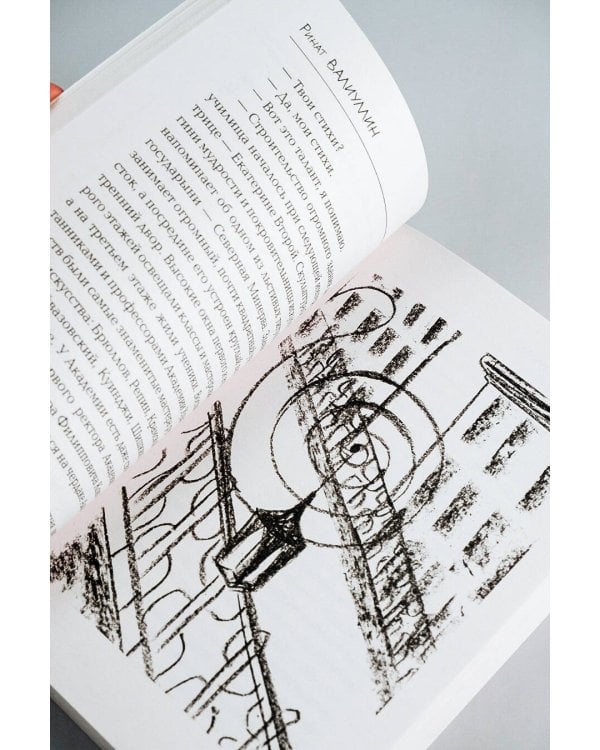 Ринат Валиуллин
— Твои стихи?
— Да, мои стихи.
— Вот это талант, я понимаю
— Строительство огромного
училища началось при следующей
трице — Екатерине Второй.
гини мудрости и покровительницы
напоминает об одном из льстивых
государыни — Северная Минерва.
занимает огромный, почти
сток, а посредине его устроен
тренний двор. Высокие окна
рого этажей освещали классы и
а на третьем этаже жили ученики
танниками и профессорами
были самые знаменитые
искусства: Брюллов, Репин,
Куинджи,
у Академии есть
первого ректора
Филипповича
ся на чердак